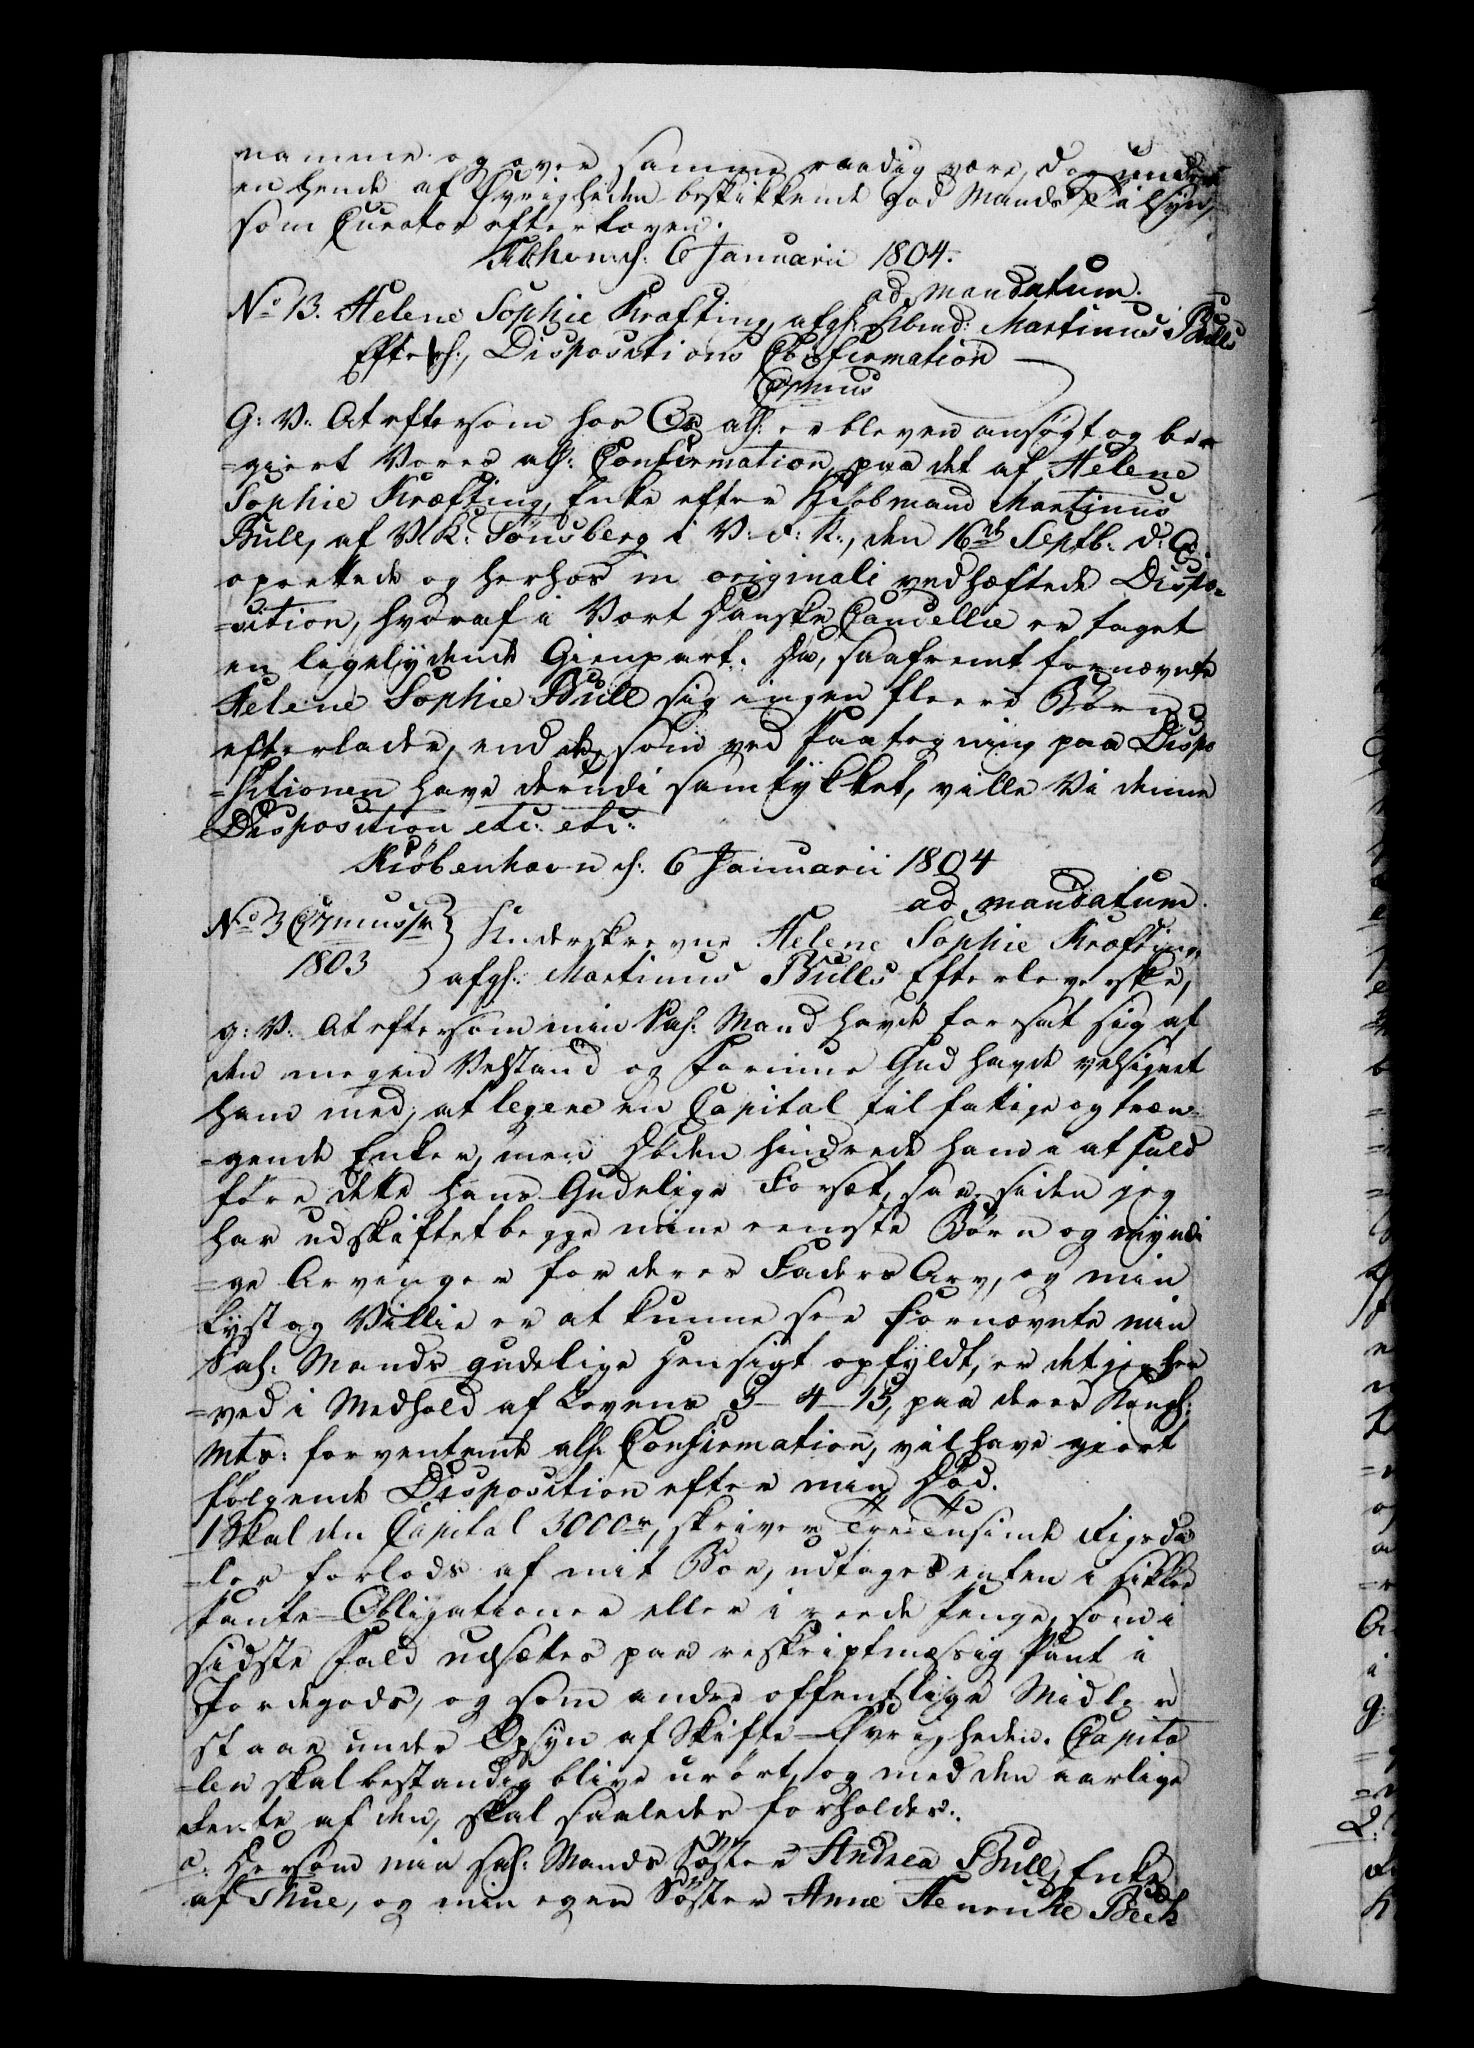 namme og over samme raadig være, dog under
en hende af Øvrigheden beskikkende god Mands Tilsyn,
som Curator efter Loven.
Kbhvn d: 6 Januarii 1804.
ad mandatum.
No 13. Helene Sophie Kræfting, afg: Kbmd: Martinus Bulls
Efterl:, Dispositions Confirmation
Cprmus
G: V: At eftersom hos Os all: er bleven ansøgt og be-
=giert Vores all: Confirmation paa det af Helene
Sophie Kræfting, Enke efter Kiøbmand Martinus
Bull, af V. K: Tønsberg i V: R: N:, den 16de Septb: d: A:
oprettede og herhos in originali vedhæftede Dispo-
=sition, hvoraf i Vort Danske Cancellie er taget
en ligelydende Gienpart. Da, saafremt fornævnte
Helene Sophie Bull sig ingen fleere Børn
efterlader, end de, som ved Paategning paa Dispo
=sitionen have derudi samtykket, ville Vi denne
Disposition etc: etc:
Kiøbenhavn d: 6 Januarii 1804
ad mandatum.
No 3 Cprmus
1803
Underskrevne Helene Sophie Kræfting,
afg: Martinus Bulls Efterleverske,
g: V: At eftersom min Sal: Mand havde foresat sig af
den megen Velstand og Formue Gud havde velsignet
ham med, at legere en Capital til fattige og træn-
=gende Enker, men Døden hindrede ham i at fuld
føre dette hans Gudelige Forsæt, saa siden jeg
har udskiftet begge mine eeneste Børn og myndi
=ge Arvinger for deres Faders Arv, og min
Lyst og Villie er at kunne see fornævnte min
Sal: Mands gudelige Hensigt opfyldt, er det jeg her
=ved i Medhold af Lovens 5-4-15, paa deres Kongl:
Mts: forventende all: Confirmation, vil have giort
følgende Disposition efter min Død.
1 Skal den Capital 3000 rd, skriver Tre Tusinde Rigsda
=ler forlods af mit Boe, udtages enten i sikkre
Pante-Obligationer eller i reede Penge, som i
sidste Fald udsættes paa reskriptmæssig Pant i
Jordegods, og som andre offentlige Midler
staae under Opsyn af Skifte-Øvrigheden. Capita
=len skal bestandig blive urørt, og med den aarlige
Rente af den, skal saaledes forholdes:
a. Dersom min sal: Mands Søster Andrea Bull, Enke
af Thue, og min egen Søster Anne Henriche Bech